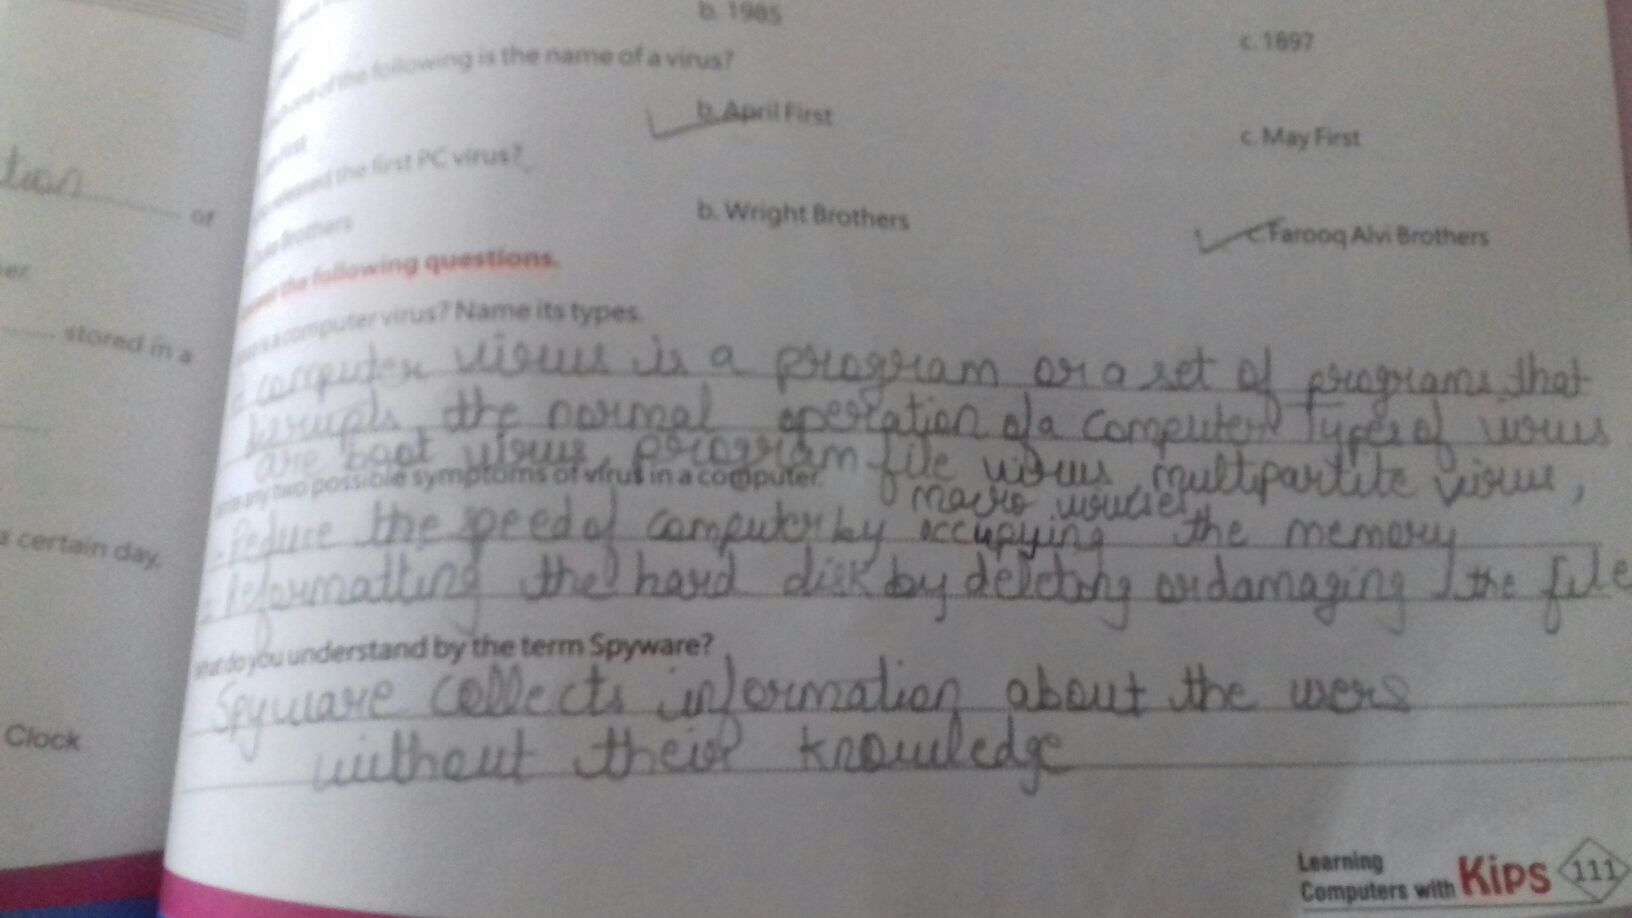 b. 1985
c. 1897
of the following is the name of a virus?
b. April First
c. May First
the first PC virus?
tion
or
b. Wright Brothers
c. Farooq Alvi Brothers
Brothers
the following questions.
er
computer virus? Name its types.
stored in a
computer virus is a program or a set of programs that
disrupts the normal operation of a computer Types of virus
are boot virus, program file virus, multipartite virus,
any two possible symptoms of virus in a computer.
macro
Reduce the speed of computer by occupying the memory
a certain day.
the hard disk by deleting or damaging the file
What do you understand by the term Spyware?
Spyware collects information about the users
Clock
without their knowledge
Learning
Computers with Kips 111